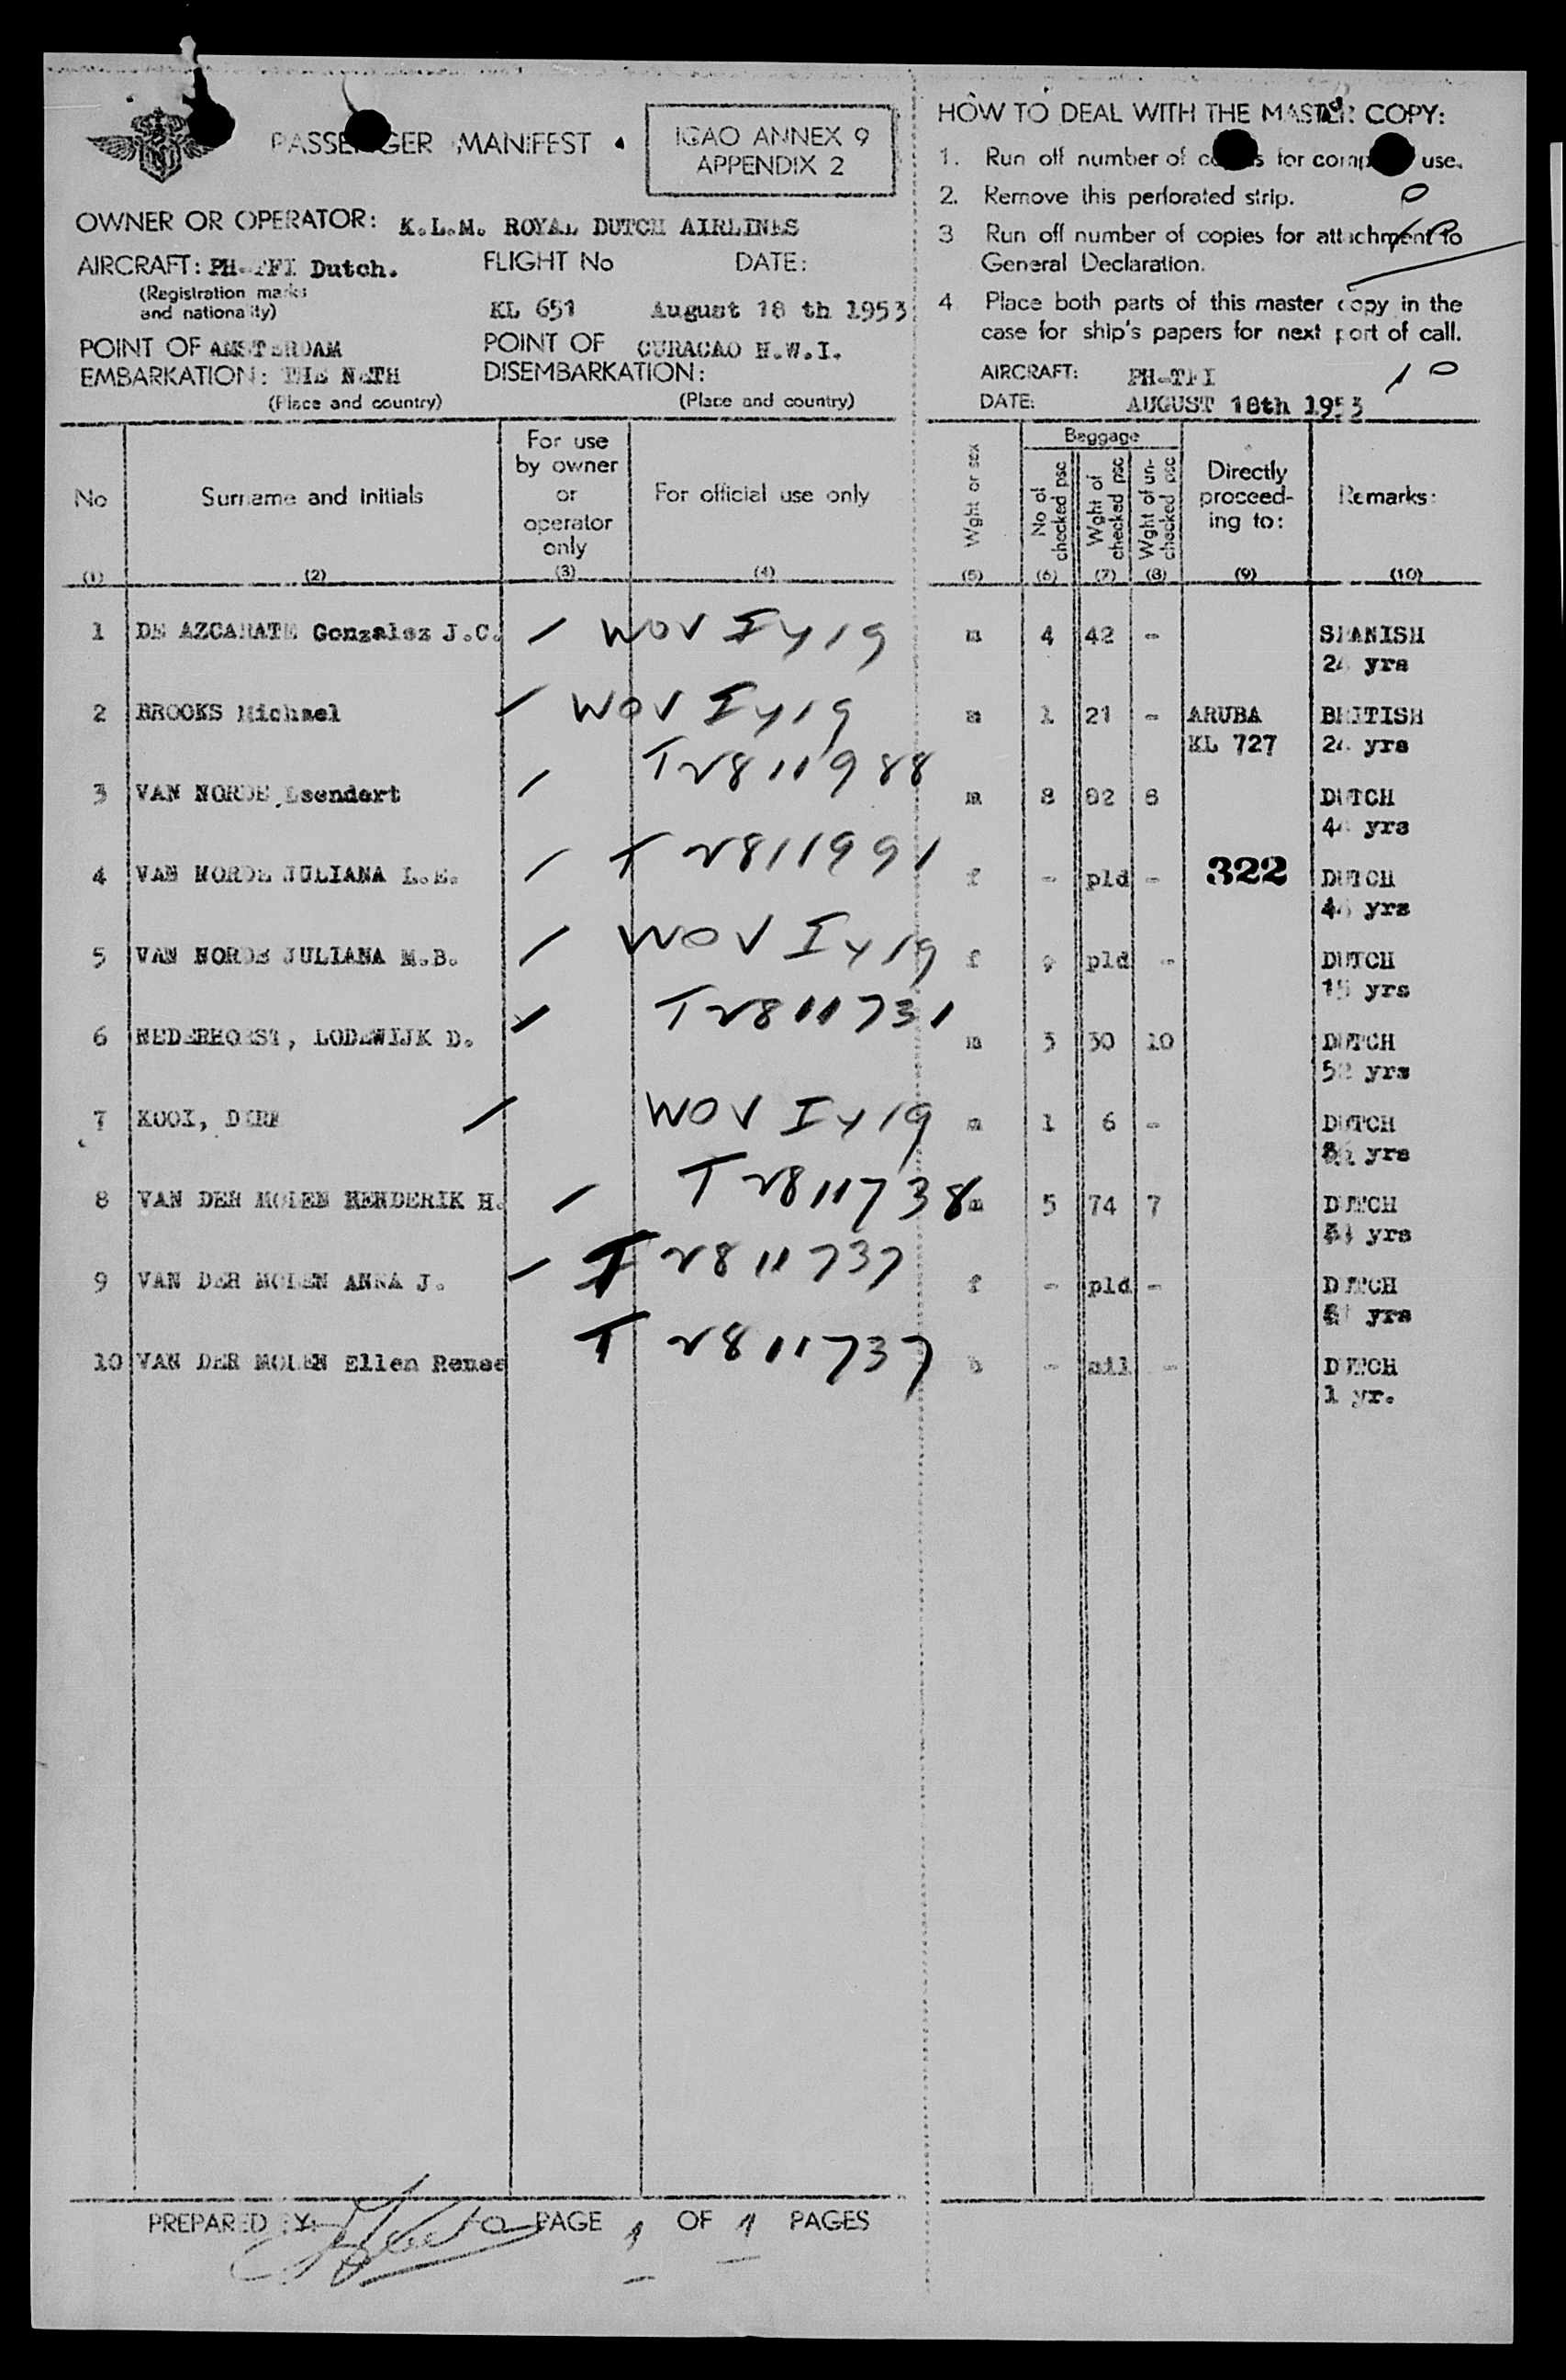 PASSENGER MANIFEST
ICAO ANNEX 9
APPENDIX 2
OWNER OR OPERATOR: K.L.M. ROYAL DUTCH AIRLINES
AIRCRAFT: PH-TFI Dutch. FLIGHT No DATE:
(Registration marks
and nationality)
KL 651 August 18 th 1953
POINT OF AMSTERDAM POINT OF CURACAO N.W.I.
EMBARKATION: THE NETH DISEMBARKATION:
(Place and country) (Place and country)
HOW TO DEAL WITH THE MASTER COPY:
1. Run off number of copies for company use.
2. Remove this perforated strip.
3 Run off number of copies for attachment to
General Declaration.
4 Place both parts of this master copy in the
case for ship's papers for next port of call.
AIRCRAFT: PH-TFI 10
DATE: AUGUST 18th 1953
No Surname and Initials For use by owner or operator only For official use only Wght or sex Baggage No of checked psc Wght of checked psc Wght of un-checked psc Directly proceed-ing to: Remarks:
(1) (2) (3) (4) (5) (6) (7) (8) (9) (10)
1 DE AZCARATE Gonzalez J.C. WOV I Y 19 m 4 42 - SPANISH
yrs
2 BROOKS Michael WOV I Y 19 m 1 21 - ARUBA BRITISH
KL 727 yrs
3 VAN NORDE Leendert T2811988 m 8 82 8 DUTCH
yrs
4 VAN NORDE JULIANA L.E. T 2811991 f - pld - 322 DUTCH
yrs
5 VAN NORDE JULIANA M.B. WOV I Y 19 f pld - DUTCH
15 yrs
6 NEDERHORST, LODEWIJK D. T2811731 m 3 30 10 DUTCH
52 yrs
7 KOOI, DIRK WOV I Y 19 m 1 6 - DUTCH
yrs
8 VAN DER MOLEN HENDERIK H. T 2811738 m 5 74 7 DUTCH
yrs
9 VAN DER MOLEN ANNA J. T 2811737 f - pld - DUTCH
yrs
10 VAN DER MOLEN Ellen Renee T 2811737 b - nil - DUTCH
1 yr.
PREPARED BY: PAGE 1 OF 1 PAGES